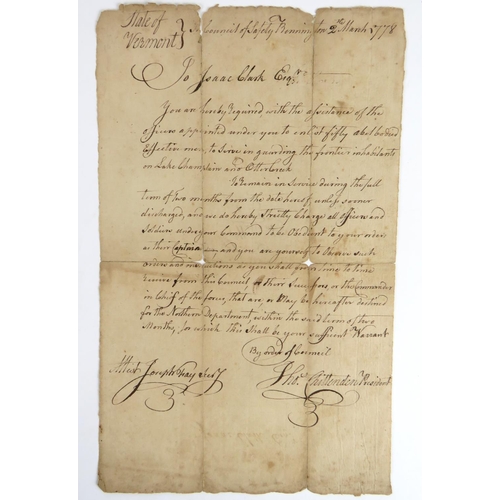 State of
Vermont } In Council of Safety Bennington 2th March 1778
To Isaac Clark Esqr
You are hereby required with the assistance of the
officers appointed under you to inlist fifty abel bodied
Effective men, to serve in guarding the frontier inhabitants
on Lake Champlain and Otter Creek
To Remain in Service during the full
term of two months from the date hereof, unless sooner
discharged, and we do hereby Strictly Charge all officers and
Soldiers under your Command to be Obedient to your orders
as their Captain and you are yourself to Observe such
orders and instructions as you shall from time to time
receive from this Council, or their Successors, or the Commander
in Chief of the forces, that are, or May be hereafter destined
for the Northern Department within the said term of two
Months, for which this Shall be your sufficient Warrant
By order of Council
Attest Joseph Fay Secy
Thos Chittenden President